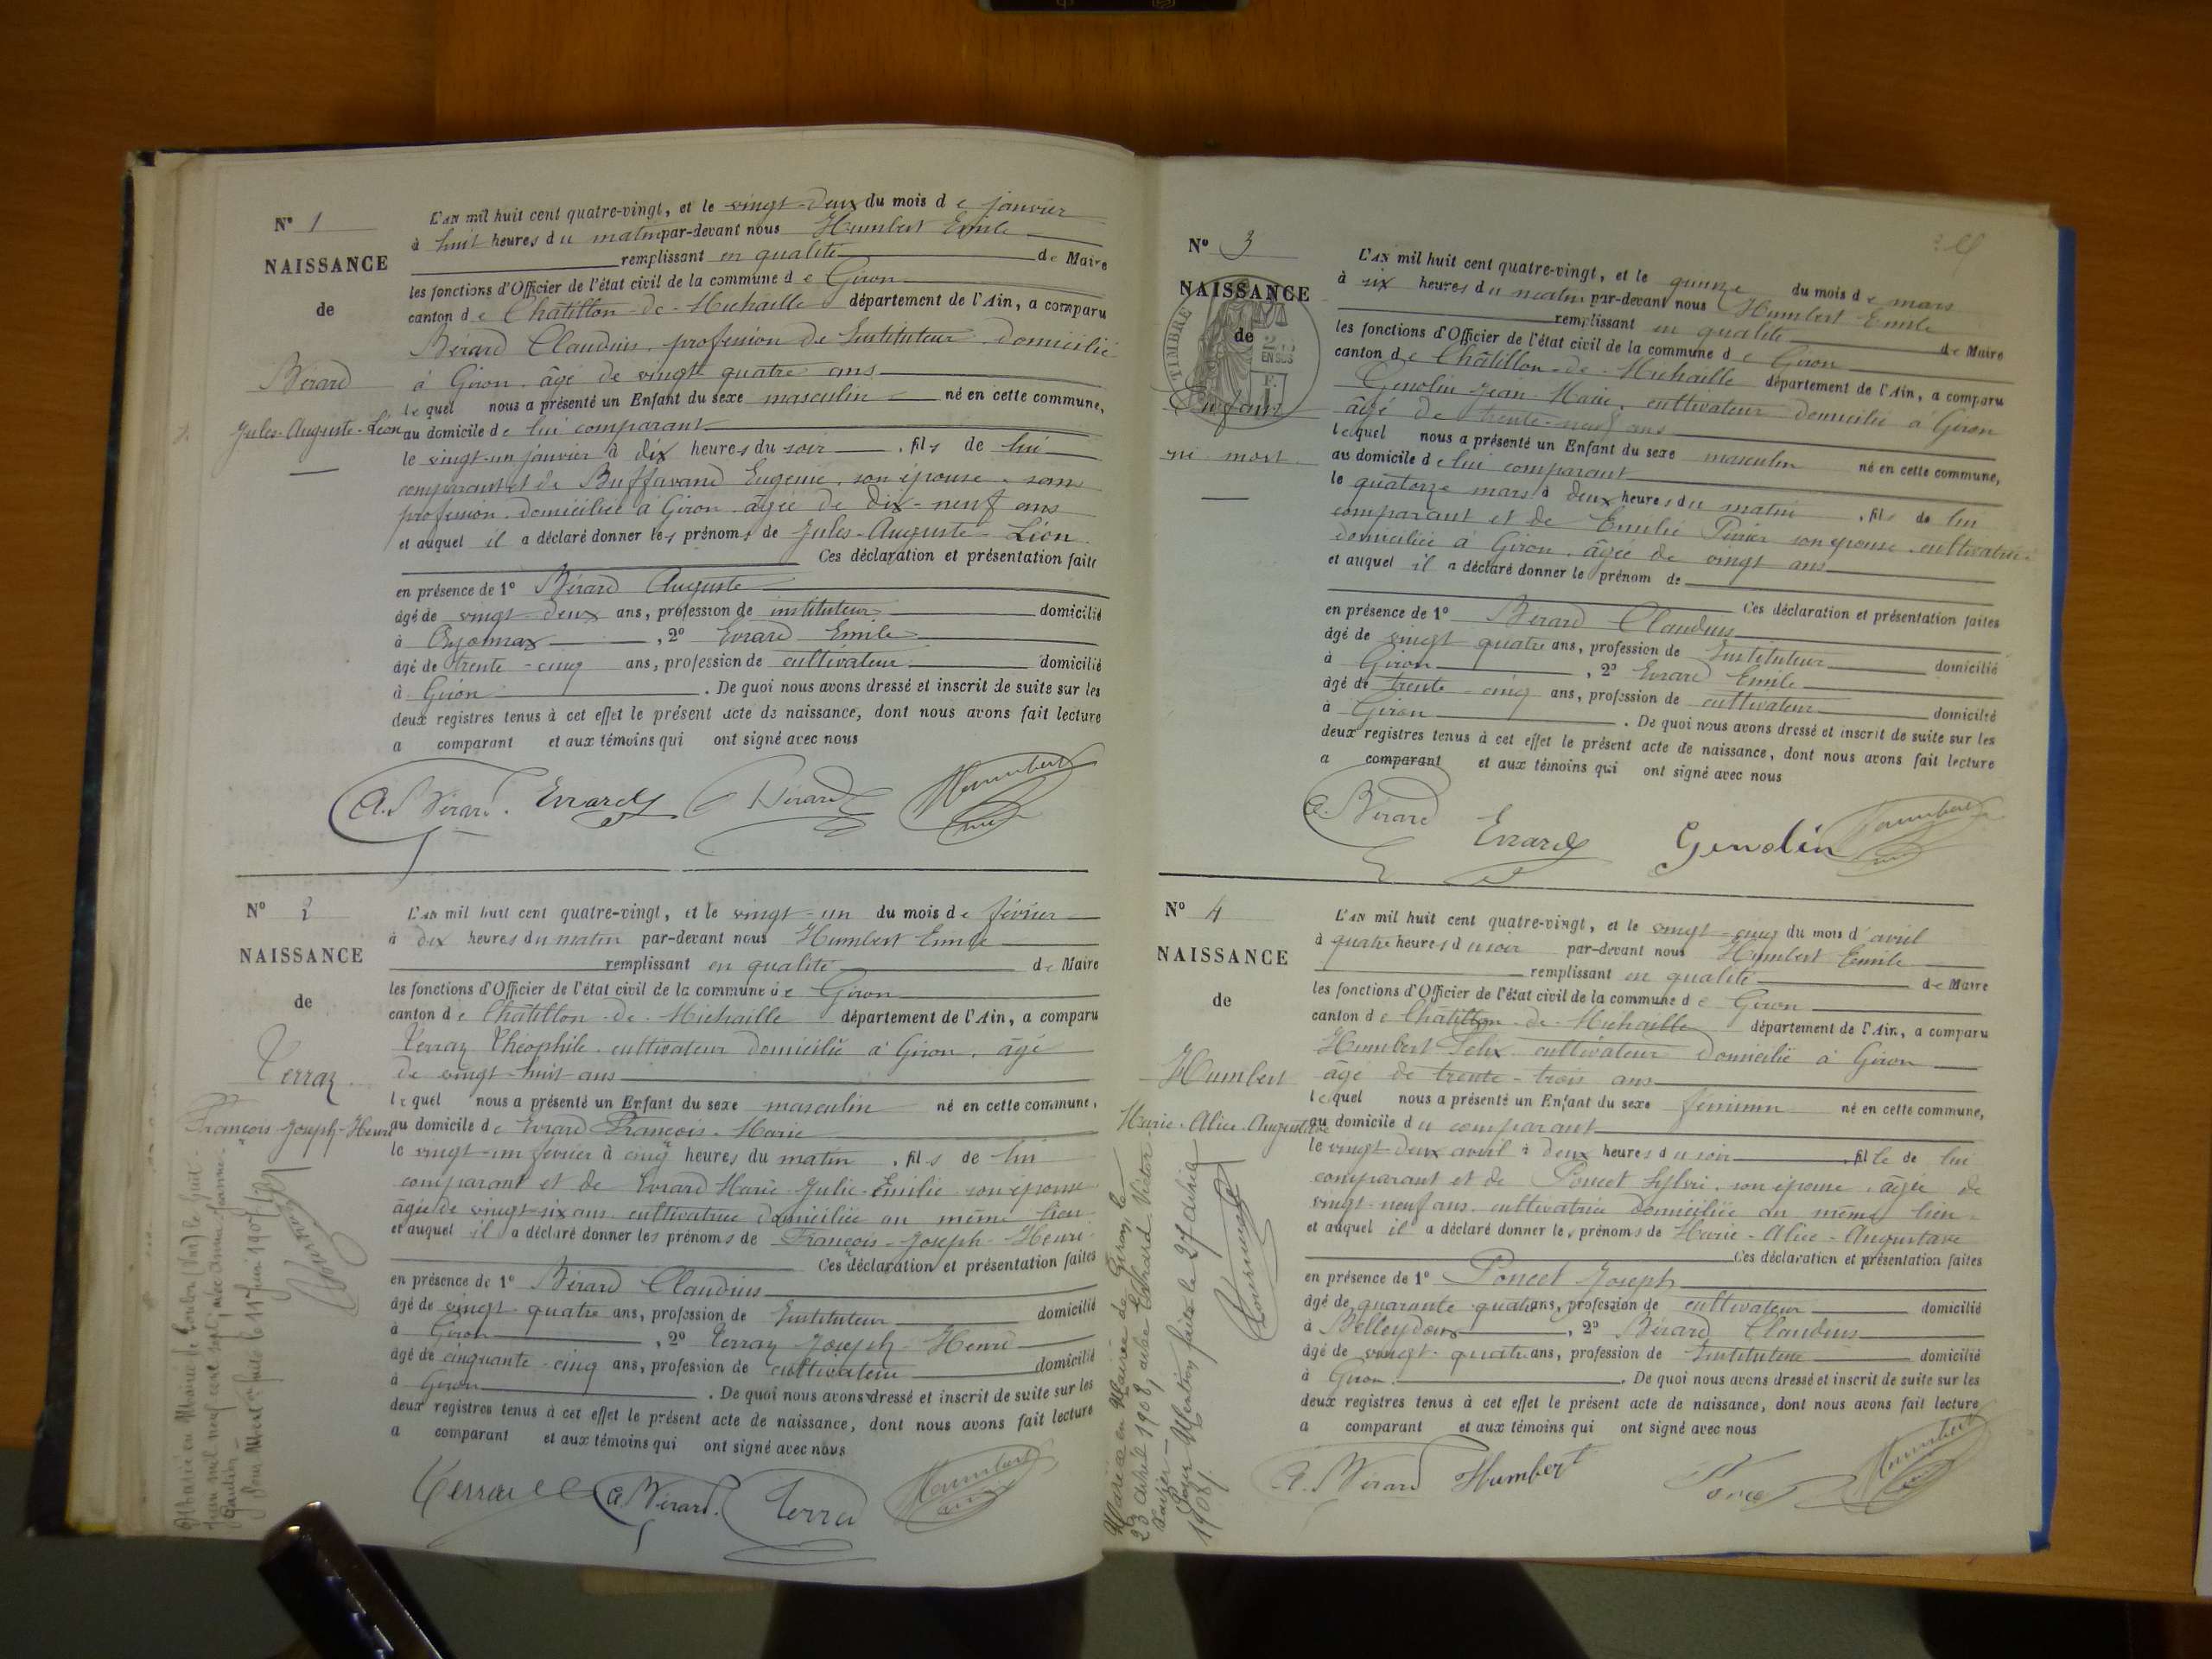 N° 1
NAISSANCE
de
Bérard
Jules-Auguste-Léon
L'AN mil huit cent quatre-vingt, et le vingt-deux du mois de janvier
à huit heures du matin par-devant nous Humbert Emile
remplissant en qualité de Maire
les fonctions d'Officier de l'état civil de la commune de Giron
canton de Châtillon-de-Michaille département de l'Ain, a comparu
Bérard Claudius, profession de Instituteur domicilié
à Giron âgé de vingt quatre ans
lequel nous a présenté un Enfant du sexe masculin né en cette commune,
au domicile de lui comparant
le vingt-un janvier à dix heures du soir , fils de lui
comparant et de Buffavand Eugénie, son épouse, sans
profession domiciliée à Giron âgée de dix-neuf ans
et auquel il a déclaré donner les prénoms de Jules-Auguste-Léon.
Ces déclaration et présentation faite
en présence de 1° Bérard Auguste
âgé de vingt-deux ans, profession de instituteur domicilié
à Oyonnax , 2° Evrard Emile
âgé de trente-cinq ans, profession de cultivateur domicilié
à Giron . De quoi nous avons dressé et inscrit de suite sur les
deux registres tenus à cet effet le présent acte de naissance, dont nous avons fait lecture
a comparant et aux témoins qui ont signé avec nous
A. Bérard. Evrard Bérard Humbert
N° 2
NAISSANCE
de
Verraz
François-Joseph-Henri
L'AN mil huit cent quatre-vingt, et le vingt-un du mois de février
à dix heures du matin par-devant nous Humbert Emile
remplissant en qualité de Maire
les fonctions d'Officier de l'état civil de la commune de Giron
canton de Châtillon-de-Michaille département de l'Ain, a comparu
Verraz Théophile cultivateur domicilié à Giron, âgé
de vingt-huit ans
lequel nous a présenté un Enfant du sexe masculin né en cette commune,
au domicile de Evrard François-Marie
le vingt-un février à cinq heures du matin , fils de lui
comparant et de Evrard Marie-Julie-Emilie son épouse
âgée de vingt-six ans cultivatrice domiciliée au même lieu
et auquel il a déclaré donner les prénoms de François-Joseph-Henri
Ces déclaration et présentation faites
en présence de 1° Bérard Claudius
âgé de vingt-quatre ans, profession de Instituteur domicilié
à Giron , 2° Verraz Joseph-Henri
âgé de cinquante-cinq ans, profession de cultivateur domicilié
à Giron . De quoi nous avons dressé et inscrit de suite sur les
deux registres tenus à cet effet le présent acte de naissance, dont nous avons fait lecture
a comparant et aux témoins qui ont signé avec nous
C. Bérard. Verraz Humbert
Marié en Mairie de Toulon (Var) le huit
juin mil neuf cent sept, avec Jeanne
Gautier
le 11 juin 1907
N° 3
NAISSANCE
TIMBRE
de
EN SUS
Enfant
né mort
L'AN mil huit cent quatre-vingt, et le quinze du mois de mars
à six heures du matin par-devant nous Humbert Emile
remplissant en qualité de Maire
les fonctions d'Officier de l'état civil de la commune de Giron
canton de Châtillon-de-Michaille département de l'Ain, a comparu
Genolin Jean-Marie, cultivateur domicilié à Giron
âgé de trente-neuf ans
lequel nous a présenté un Enfant du sexe masculin né en cette commune,
au domicile de lui comparant
le quatorze mars à deux heures du matin , fils de lui
comparant et de Emilie son épouse cultivatrice
domiciliée à Giron, âgée de vingt ans
et auquel il a déclaré donner le prénom de
Ces déclaration et présentation faites
en présence de 1° Bérard Claudius
âgé de vingt quatre ans, profession de Instituteur domicilié
à Giron , 2° Evrard Emile
âgé de trente-cinq ans, profession de cultivateur domicilié
à Giron . De quoi nous avons dressé et inscrit de suite sur les
deux registres tenus à cet effet le présent acte de naissance, dont nous avons fait lecture
a comparant et aux témoins qui ont signé avec nous
C. Bérard Evrard Genolin Humbert
N° 4
NAISSANCE
de
Humbert
Marie-Alice-Augustave
L'AN mil huit cent quatre-vingt, et le vingt-cinq du mois d'avril
à quatre heures du soir par-devant nous Humbert Emile
remplissant en qualité de Maire
les fonctions d'Officier de l'état civil de la commune de Giron
canton de Châtillon-de-Michaille département de l'Ain, a comparu
Humbert Félix cultivateur domicilié à Giron
âgé de trente-trois ans
lequel nous a présenté un Enfant du sexe féminin né en cette commune,
au domicile du comparant
le vingt-deux avril à deux heures du soir , fille de lui
comparant et de Poncet Sylvie, son épouse, âgée de
vingt-neuf ans cultivatrice domiciliée au même lieu
et auquel il a déclaré donner les prénoms de Marie-Alice-Augustave
Ces déclaration et présentation faites
en présence de 1° Poncet Joseph
âgé de quarante-quatre ans, profession de cultivateur domicilié
à Belleydoux , 2° Bérard Claudius
âgé de vingt-quatre ans, profession de Instituteur domicilié
à Giron . De quoi nous avons dressé et inscrit de suite sur les
deux registres tenus à cet effet le présent acte de naissance, dont nous avons fait lecture
a comparant et aux témoins qui ont signé avec nous
C. Bérard Humbert Poncet Humbert
Mariée en Mairie de Giron le
23 avril 1908, avec Evrard Victor
Xavier
Pour Mention faite le 27 avril
1908.